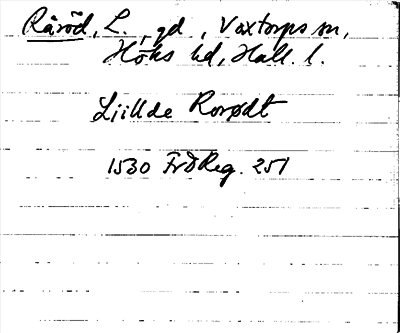 Råröd, L., gd, Våxtorps sn,
Höks hd, Hall. l.
Liillde Rorødt
1530 FrdReg. 251